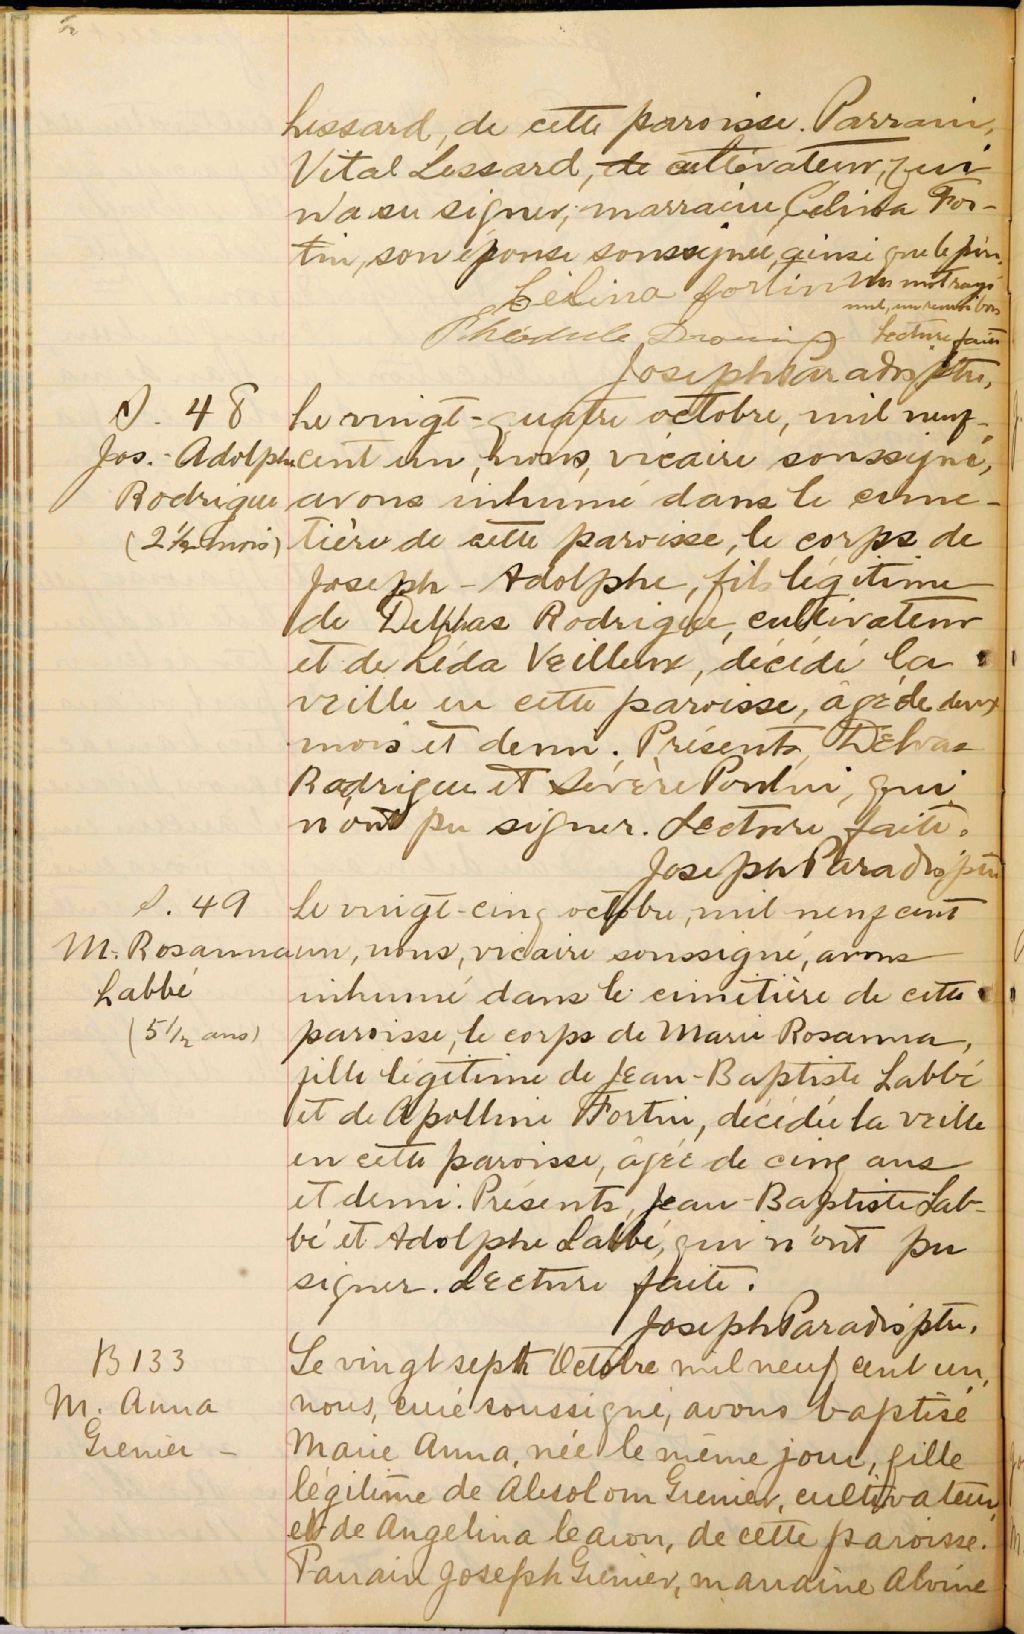 Lessard, de cette paroisse. Parrain,
Vital Lessard, de cultivateur, qui
n'a su signer; marraine, Célina For-
tin, son épouse soussignée, ainsi que le père.
Célina Fortin Un mot rayé
nul, un renvoi bon
Théodule Drouin Lecture faite
Joseph Paradis ptre,
S. 48
Jos.-Adolphe
Rodrigue
(2 1/2 mois)
Le vingt-quatre octobre, mil neuf-
cent un, nous, vicaire soussigné,
avons inhumé dans le cime-
tière de cette paroisse, le corps de
Joseph-Adolphe, fils légitime
de Delphas Rodrigue, cultivateur
et de Léda Veilleux, décédé la
veille en cette paroisse, âgé de deux
mois et demi. Présents, Delvas
Rodrigue et Sévère Poulin, qui
n'ont pu signer. Lecture faite.
Joseph Paradis ptre
S. 49
M. Rosanna
Labbé
(5 1/2 ans)
Le vingt-cinq octobre, mil neuf cent
un, nous, vicaire soussigné, avons
inhumé dans le cimetière de cette
paroisse, le corps de Marie Rosanna,
fille légitime de Jean-Baptiste Labbé
et de Apolline Fortin, décédée la veille
en cette paroisse, âgée de cinq ans
et demi. Présents, Jean-Baptiste Lab-
bé et Adolphe Labbé, qui n'ont pu
signer. Lecture faite.
Joseph Paradis ptre.
B 133
M. Anna
Grenier –
Le vingt sept Octobre mil neuf cent un,
nous, curé soussigné, avons baptisé
Marie Anna, née le même jour, fille
légitime de Absolom Grenier, cultivateur,
et de Angelina Caron, de cette paroisse.
Parrain Joseph Grenier, marraine Alvine